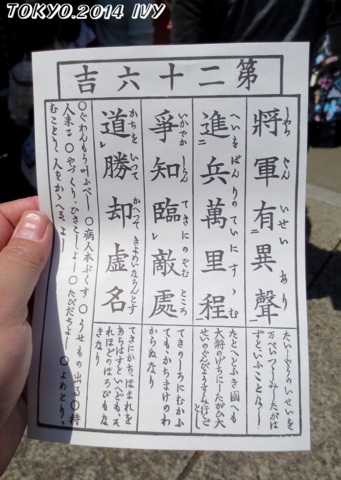 TOKYO.2014 IVY
第二十六吉
將軍有異聲
しやうぐん いせい あり
たいしやうのいせいを
万ぺいつゝしみしたがは
ずといふことなし
進兵萬里程
へいをばんりのていにすゝむ
たとへとふき國へも
大将のげぢにしたがひ大
爭知臨敵處
いかでかしらん てきにのぞむ ところ
てきのしろにむかふ
てもかちまけのわ
からぬなり
道勝却虚名
かちを いつて かへつて きよめいならんとす
てきにかち、ほまれを
あらはすといへども、
れほどのほろびもな
きなり
○ぐわんもう叶ふべし ○病人本ぶくす ○うせもの出る ○待
人来る ○やづくり、ひきこしよし ○たびだちよし ○よめとり、
むことり、人をかゝへる、よし